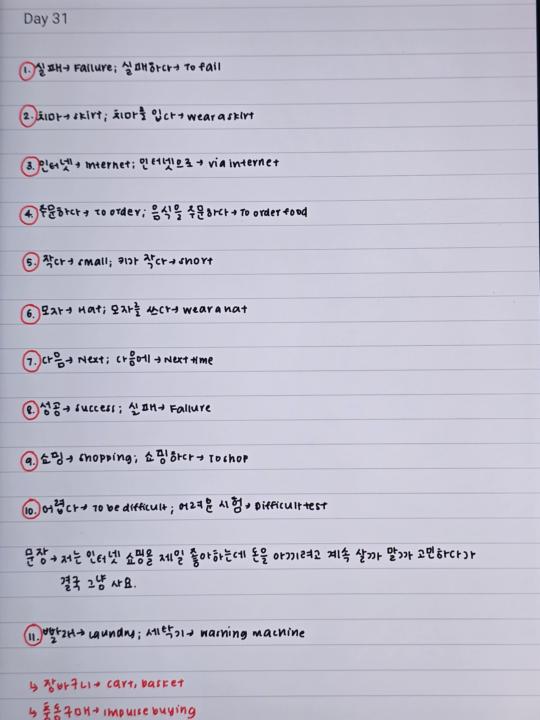 Day 31
1. 실패→ Failure; 실패하다→ To fail
2. 치마→ skirt; 치마를 입다→ wear a skirt
3. 인터넷→ internet; 인터넷으로→ via internet
4. 주문하다→ To order; 음식을 주문하다→ To order food
5. 작다→ small; 키가 작다→ short
6. 모자→ Hat; 모자를 쓰다→ wear a hat
7. 다음→ Next; 다음에→ Next time
8. 성공→ success; 실패→ Failure
9. 쇼핑→ shopping; 쇼핑하다→ To shop
10. 어렵다→ To be difficult; 어려운 시험→ Difficult test
문장→ 저는 인터넷 쇼핑을 제일 좋아하는데 돈을 아끼려고 계속 살까 말까 고민하다가
결국 그냥 사요.
11. 빨래→ Laundry; 세탁기→ washing machine
↳ 장바구니→ cart, basket
↳ 충동구매→ impulse buying